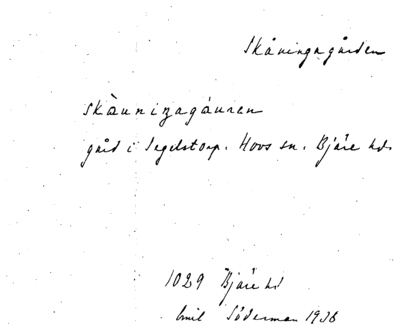 Skåningagården
skåuningagáuren
gård i Ingelstorp. Hovs sn. Bjäre hd.
1029 Bjäre hd
Emil Söderman 1936